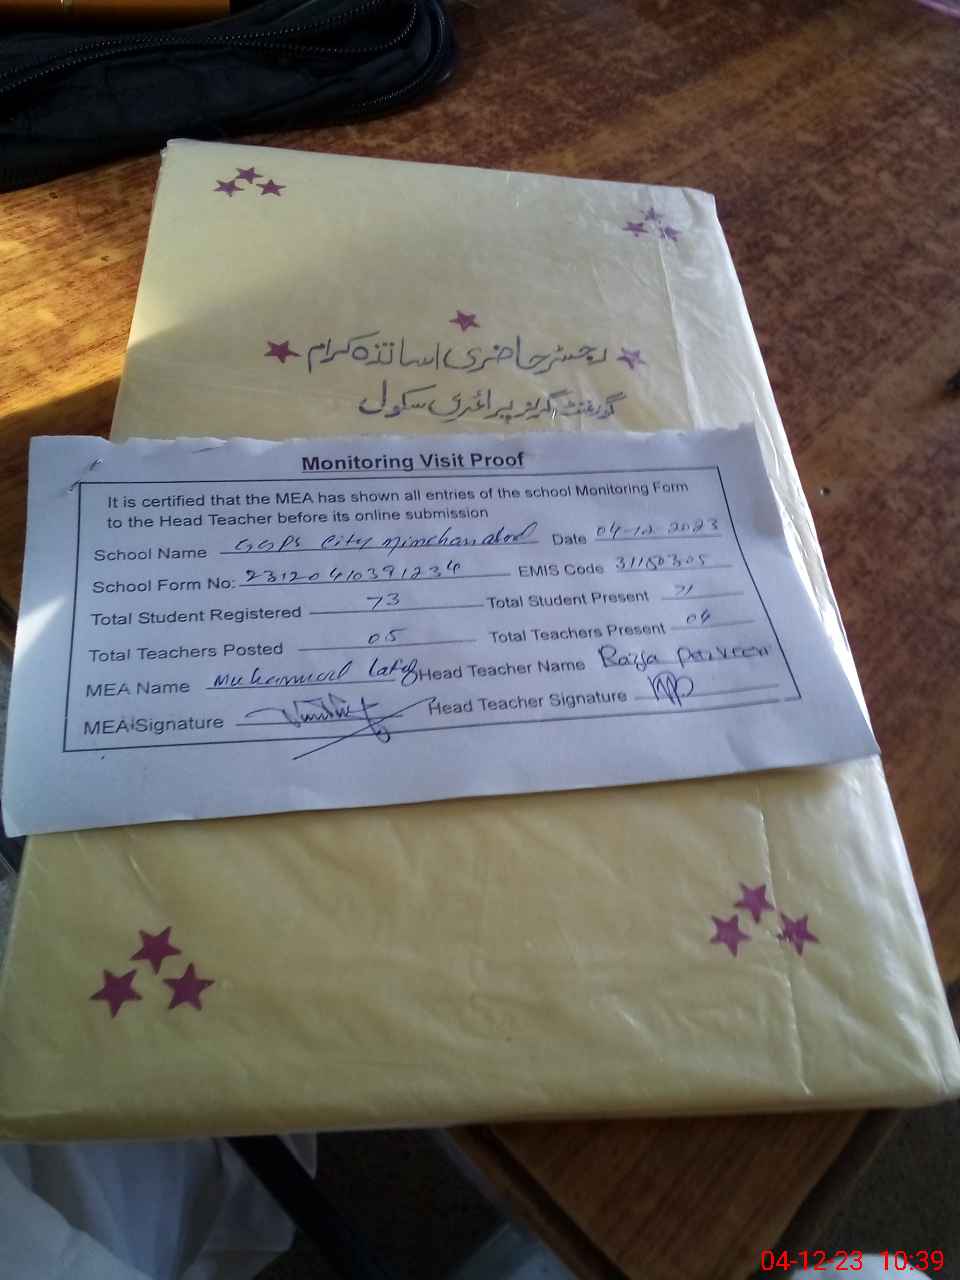 رجسٹر حاضری اساتذہ کرام
گورنمنٹ گرلز پرائمری سکول
Monitoring Visit Proof
It is certified that the MEA has shown all entries of the school Monitoring Form
to the Head Teacher before its online submission
School Name GGPS City Minchanabad Date 04-12-2023
School Form No: 23120410391234 EMIS Code 31150305
Total Student Registered 73 Total Student Present 71
Total Teachers Posted 05 Total Teachers Present 04
MEA Name Muhammad Latif Head Teacher Name Razia Parveen
MEA Signature Head Teacher Signature
04-12-23 10:39